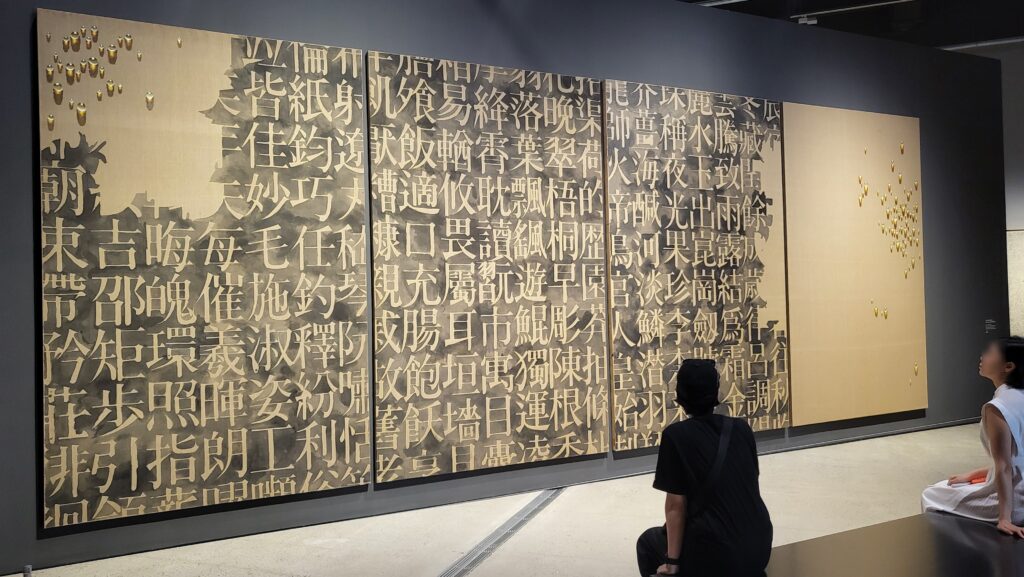 冬藏餘成歲呂調
雲騰致雨露結爲霜金
麗水玉出崑岡劍
珠稱夜光果珍李
芥薑海鹹河淡鱗潛羽
龍師火帝鳥官人皇始制
渠荷的歷園莽抽條
晚翠梧桐早彫陳根委
落葉飄颻遊鯤獨運凌
摩絳霄耽讀翫市寓目囊
箱易輶攸畏屬耳垣墻具
膳飡飯適口充腸飽飫享
飢猒糟糠親戚故舊老
布射遼丸嵇琴阮嘯恬
倫紙鈞巧任釣釋紛利俗
並皆佳妙毛施淑姿工嚬
每催羲暉朗曜
晦魄環照指薪
吉邵矩步引領
朝束帶矜莊徘徊